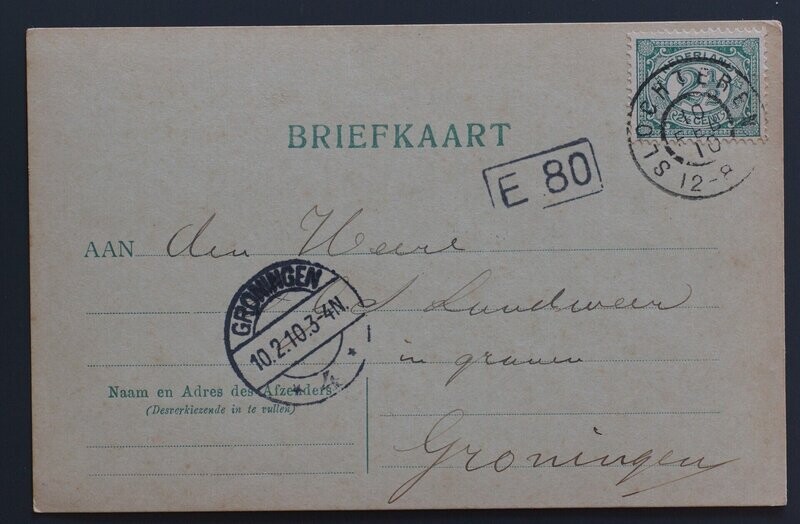 NEDERLAND
2½
CENT
SLOCHTEREN
FEB
10
12-8
BRIEFKAART
E 80
AAN den Heere
Landweer
in granen
Groningen
GRONINGEN
10.2.10.3-4N.
* 4 *
Naam en Adres des Afzenders
(Desverkiezende in te vullen)